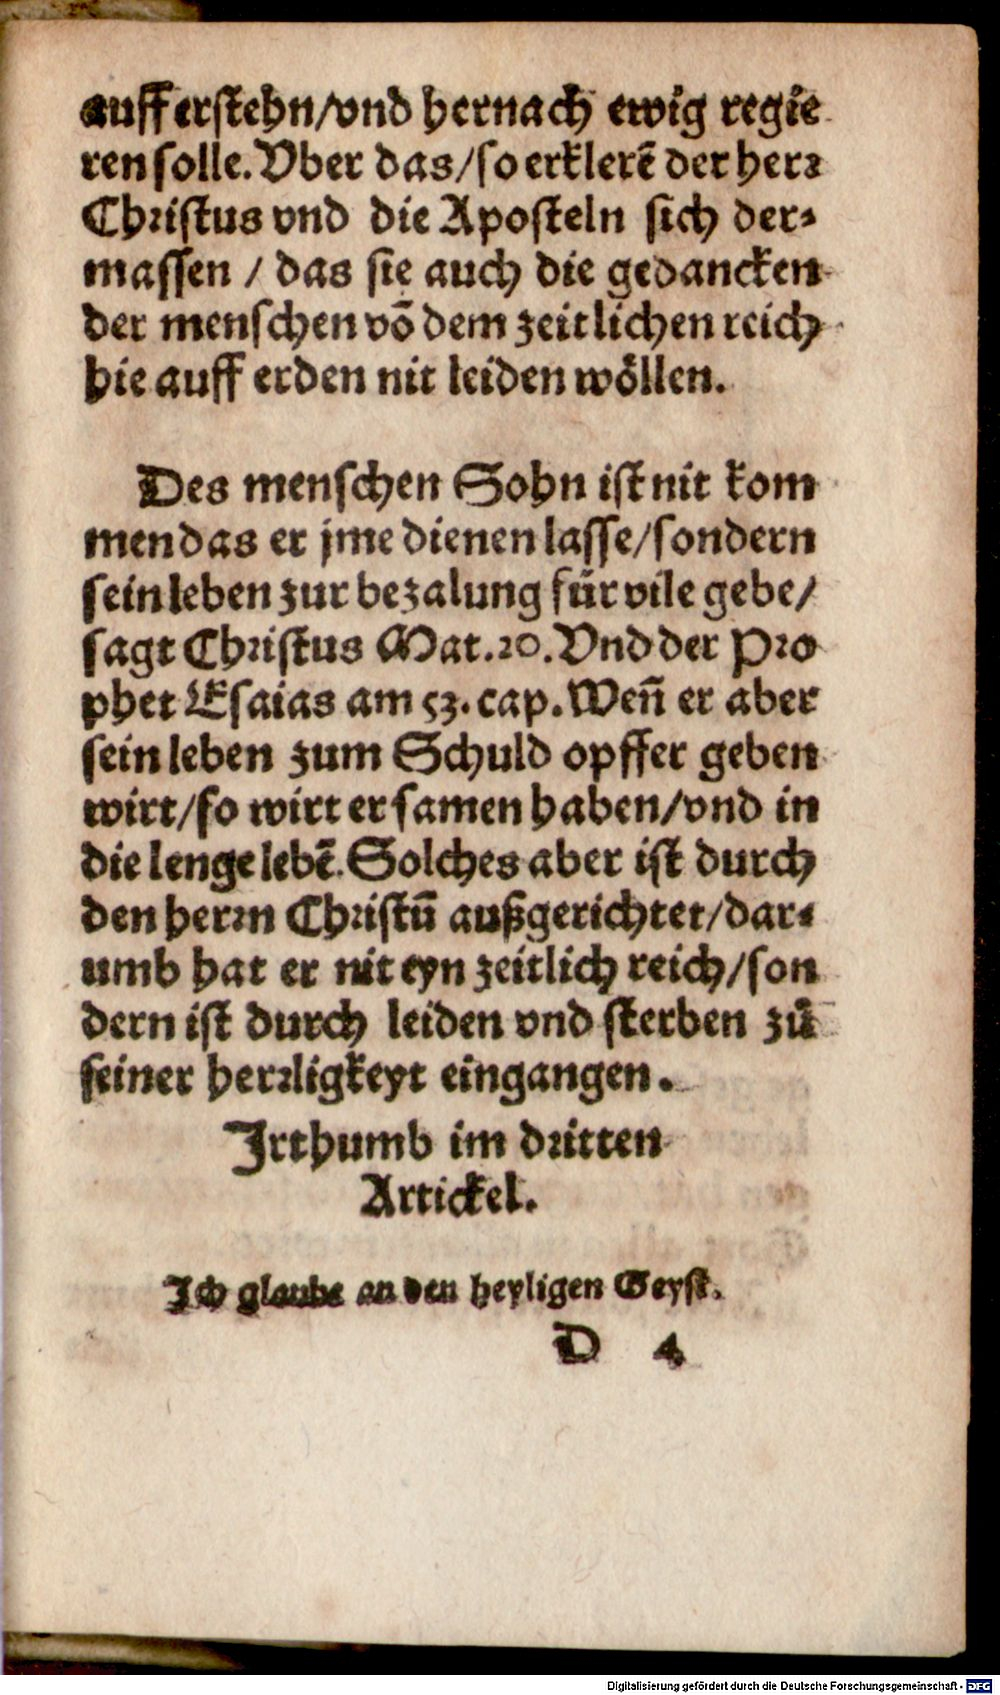 aufferstehn/vnd hernach ewig regie
ren solle. Vber das/so erklerē der herr
Christus vnd die Aposteln sich der-
massen / das sie auch die gedancken
der menschen vō dem zeitlichen reich
hie auff erden nit leiden wöllen.
Des menschen Sohn ist nit kom
men das er jme dienen lasse/sondern
sein leben zur bezalung für vile gebe/
sagt Christus Mat.20. Vnd der Pro
phet Esaias am 53. cap. Weñ er aber
sein leben zum Schuld opffer geben
wirt/so wirt er samen haben/vnd in
die lenge lebē. Solches aber ist durch
den herrn Christū außgerichtet/dar-
umb hat er nit eyn zeitlich reich/son
dern ist durch leiden vnd sterben zů
seiner herrligkeyt eingangen.
Jrthumb im dritten
Artickel.
Jch glaube an den heyligen Geyst.
D 4
Digitalisierung gefördert durch die Deutsche Forschungsgemeinschaft - DFG